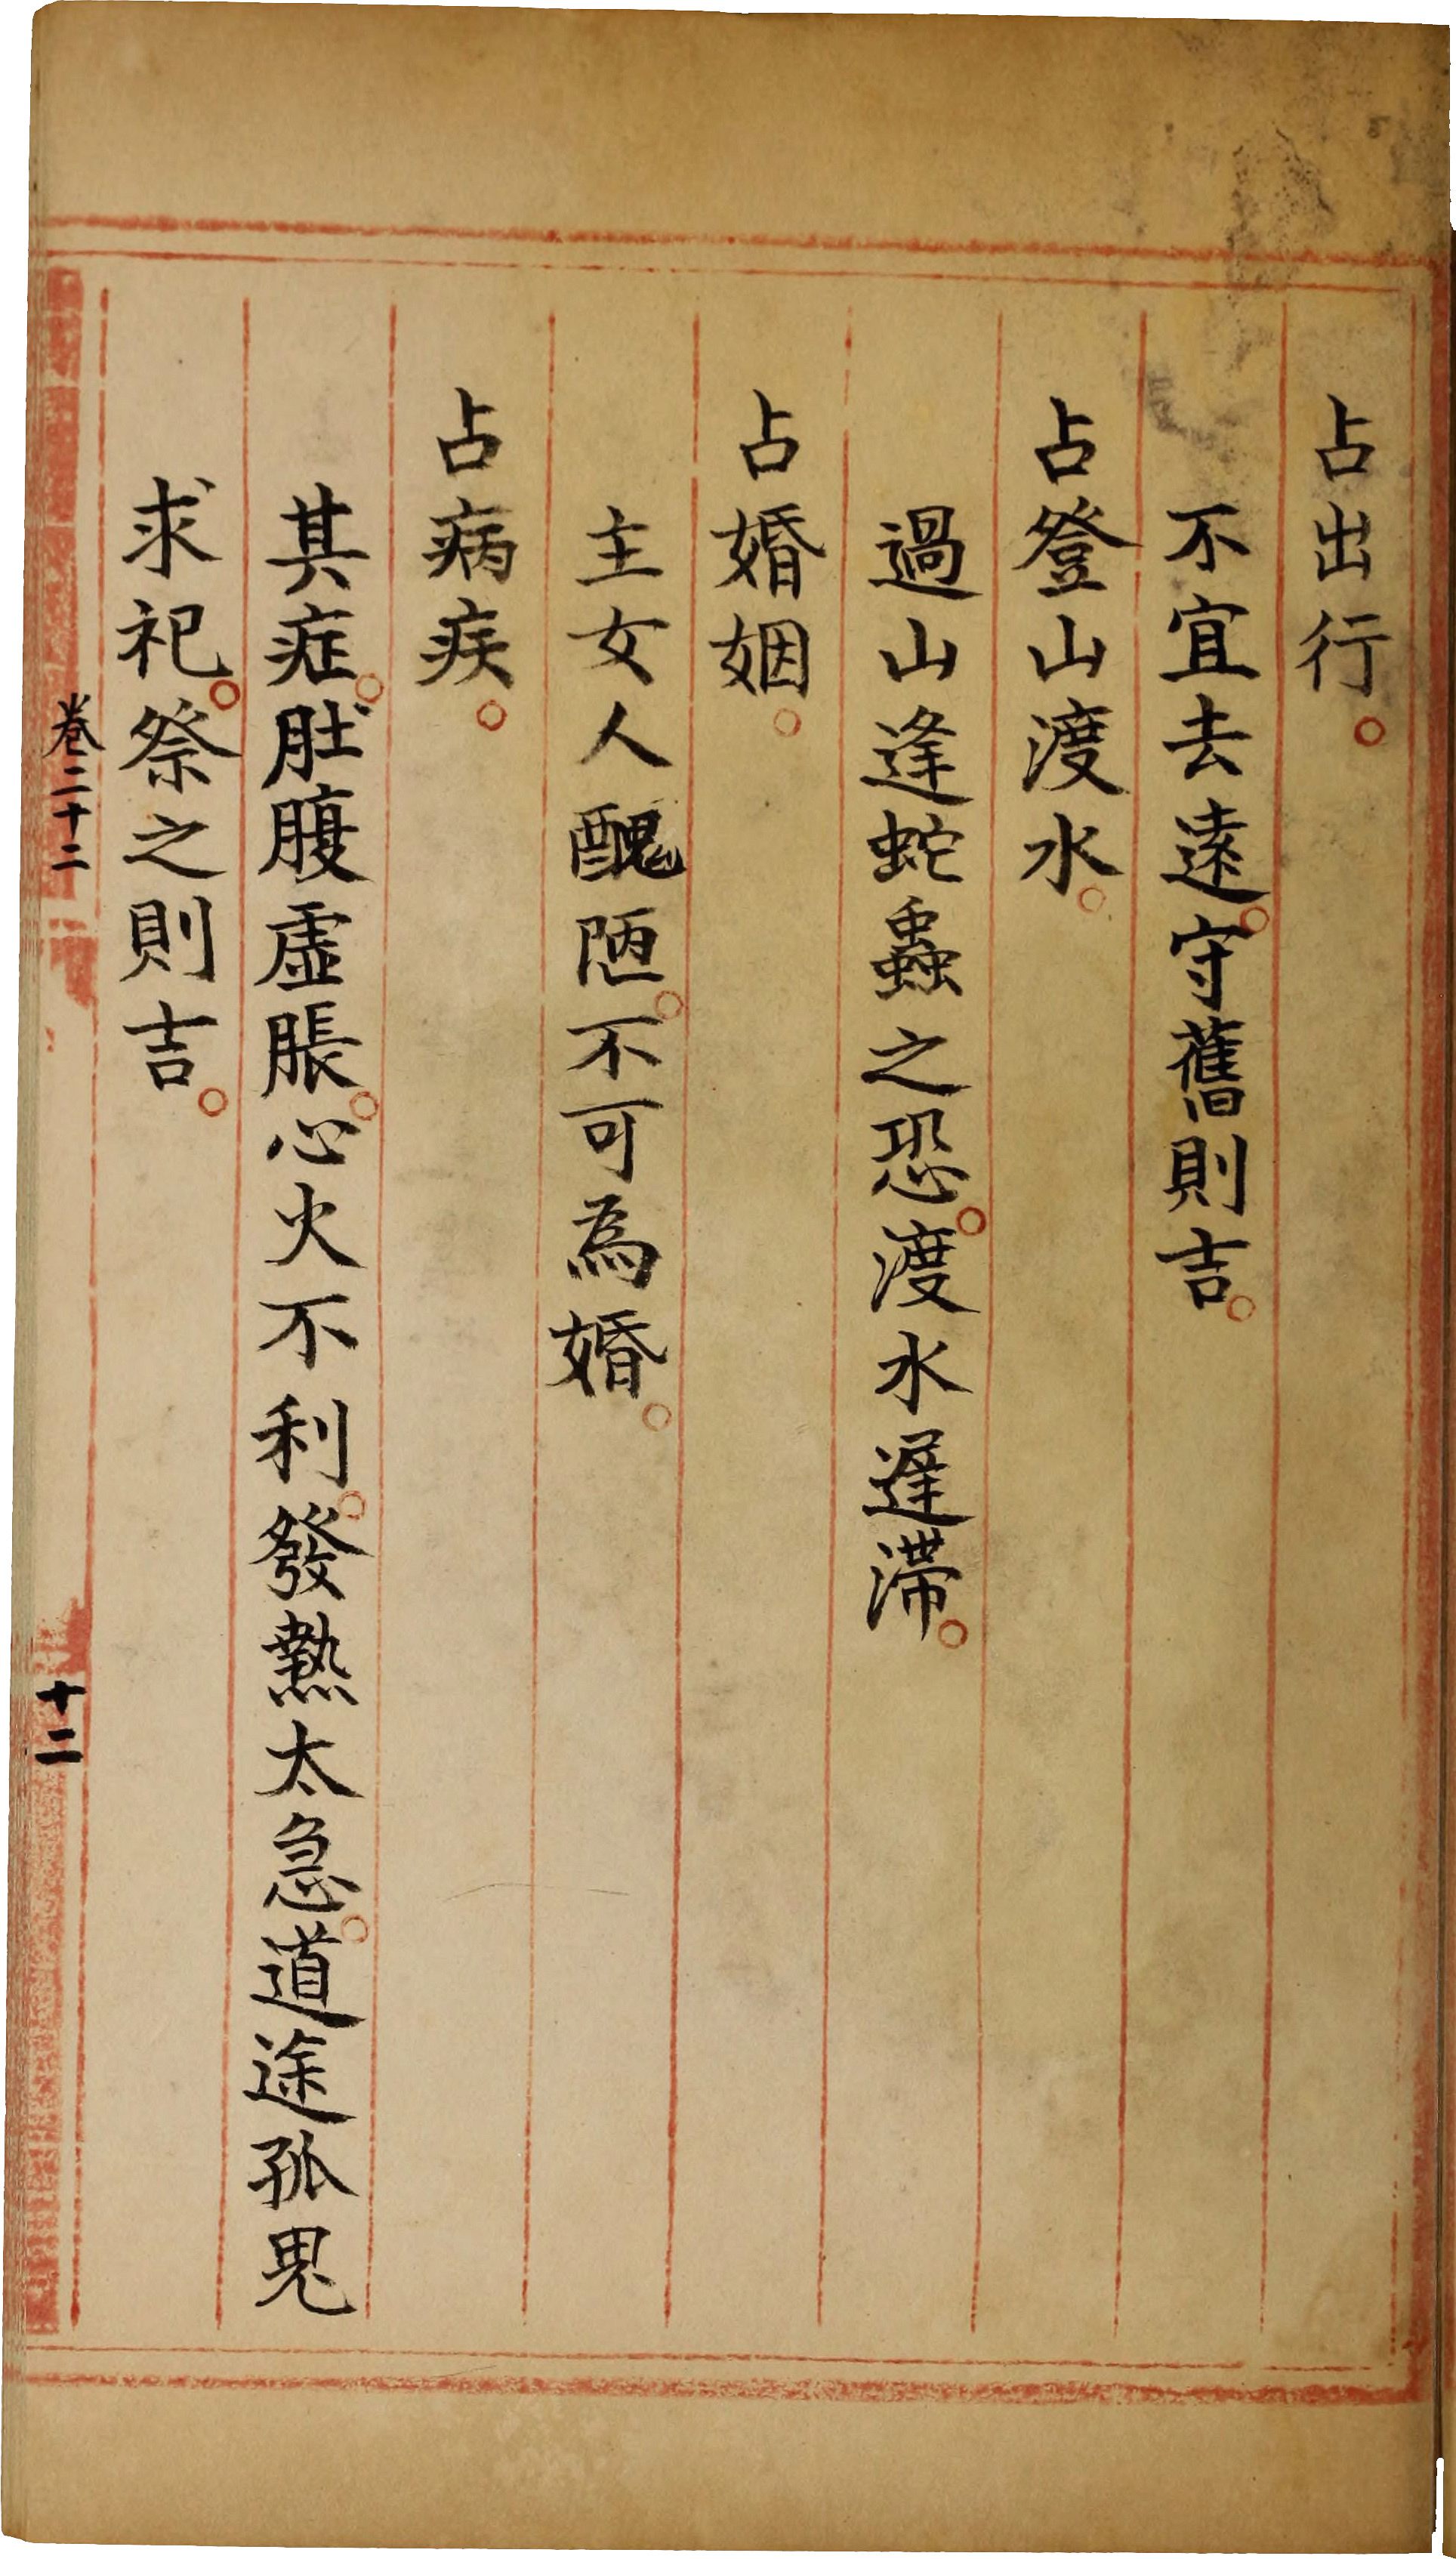 占出行。
不宜去遠。守舊則吉。
占登山渡水。
過山逢蛇蟲之恐。渡水遲滯。
占婚姻。
主女人醜陋。不可為婚。
占病疾。
其症。肚腹虛脹。心火不利。發熱太急。道途孤鬼
求祀。祭之則吉。
卷二十二
十二